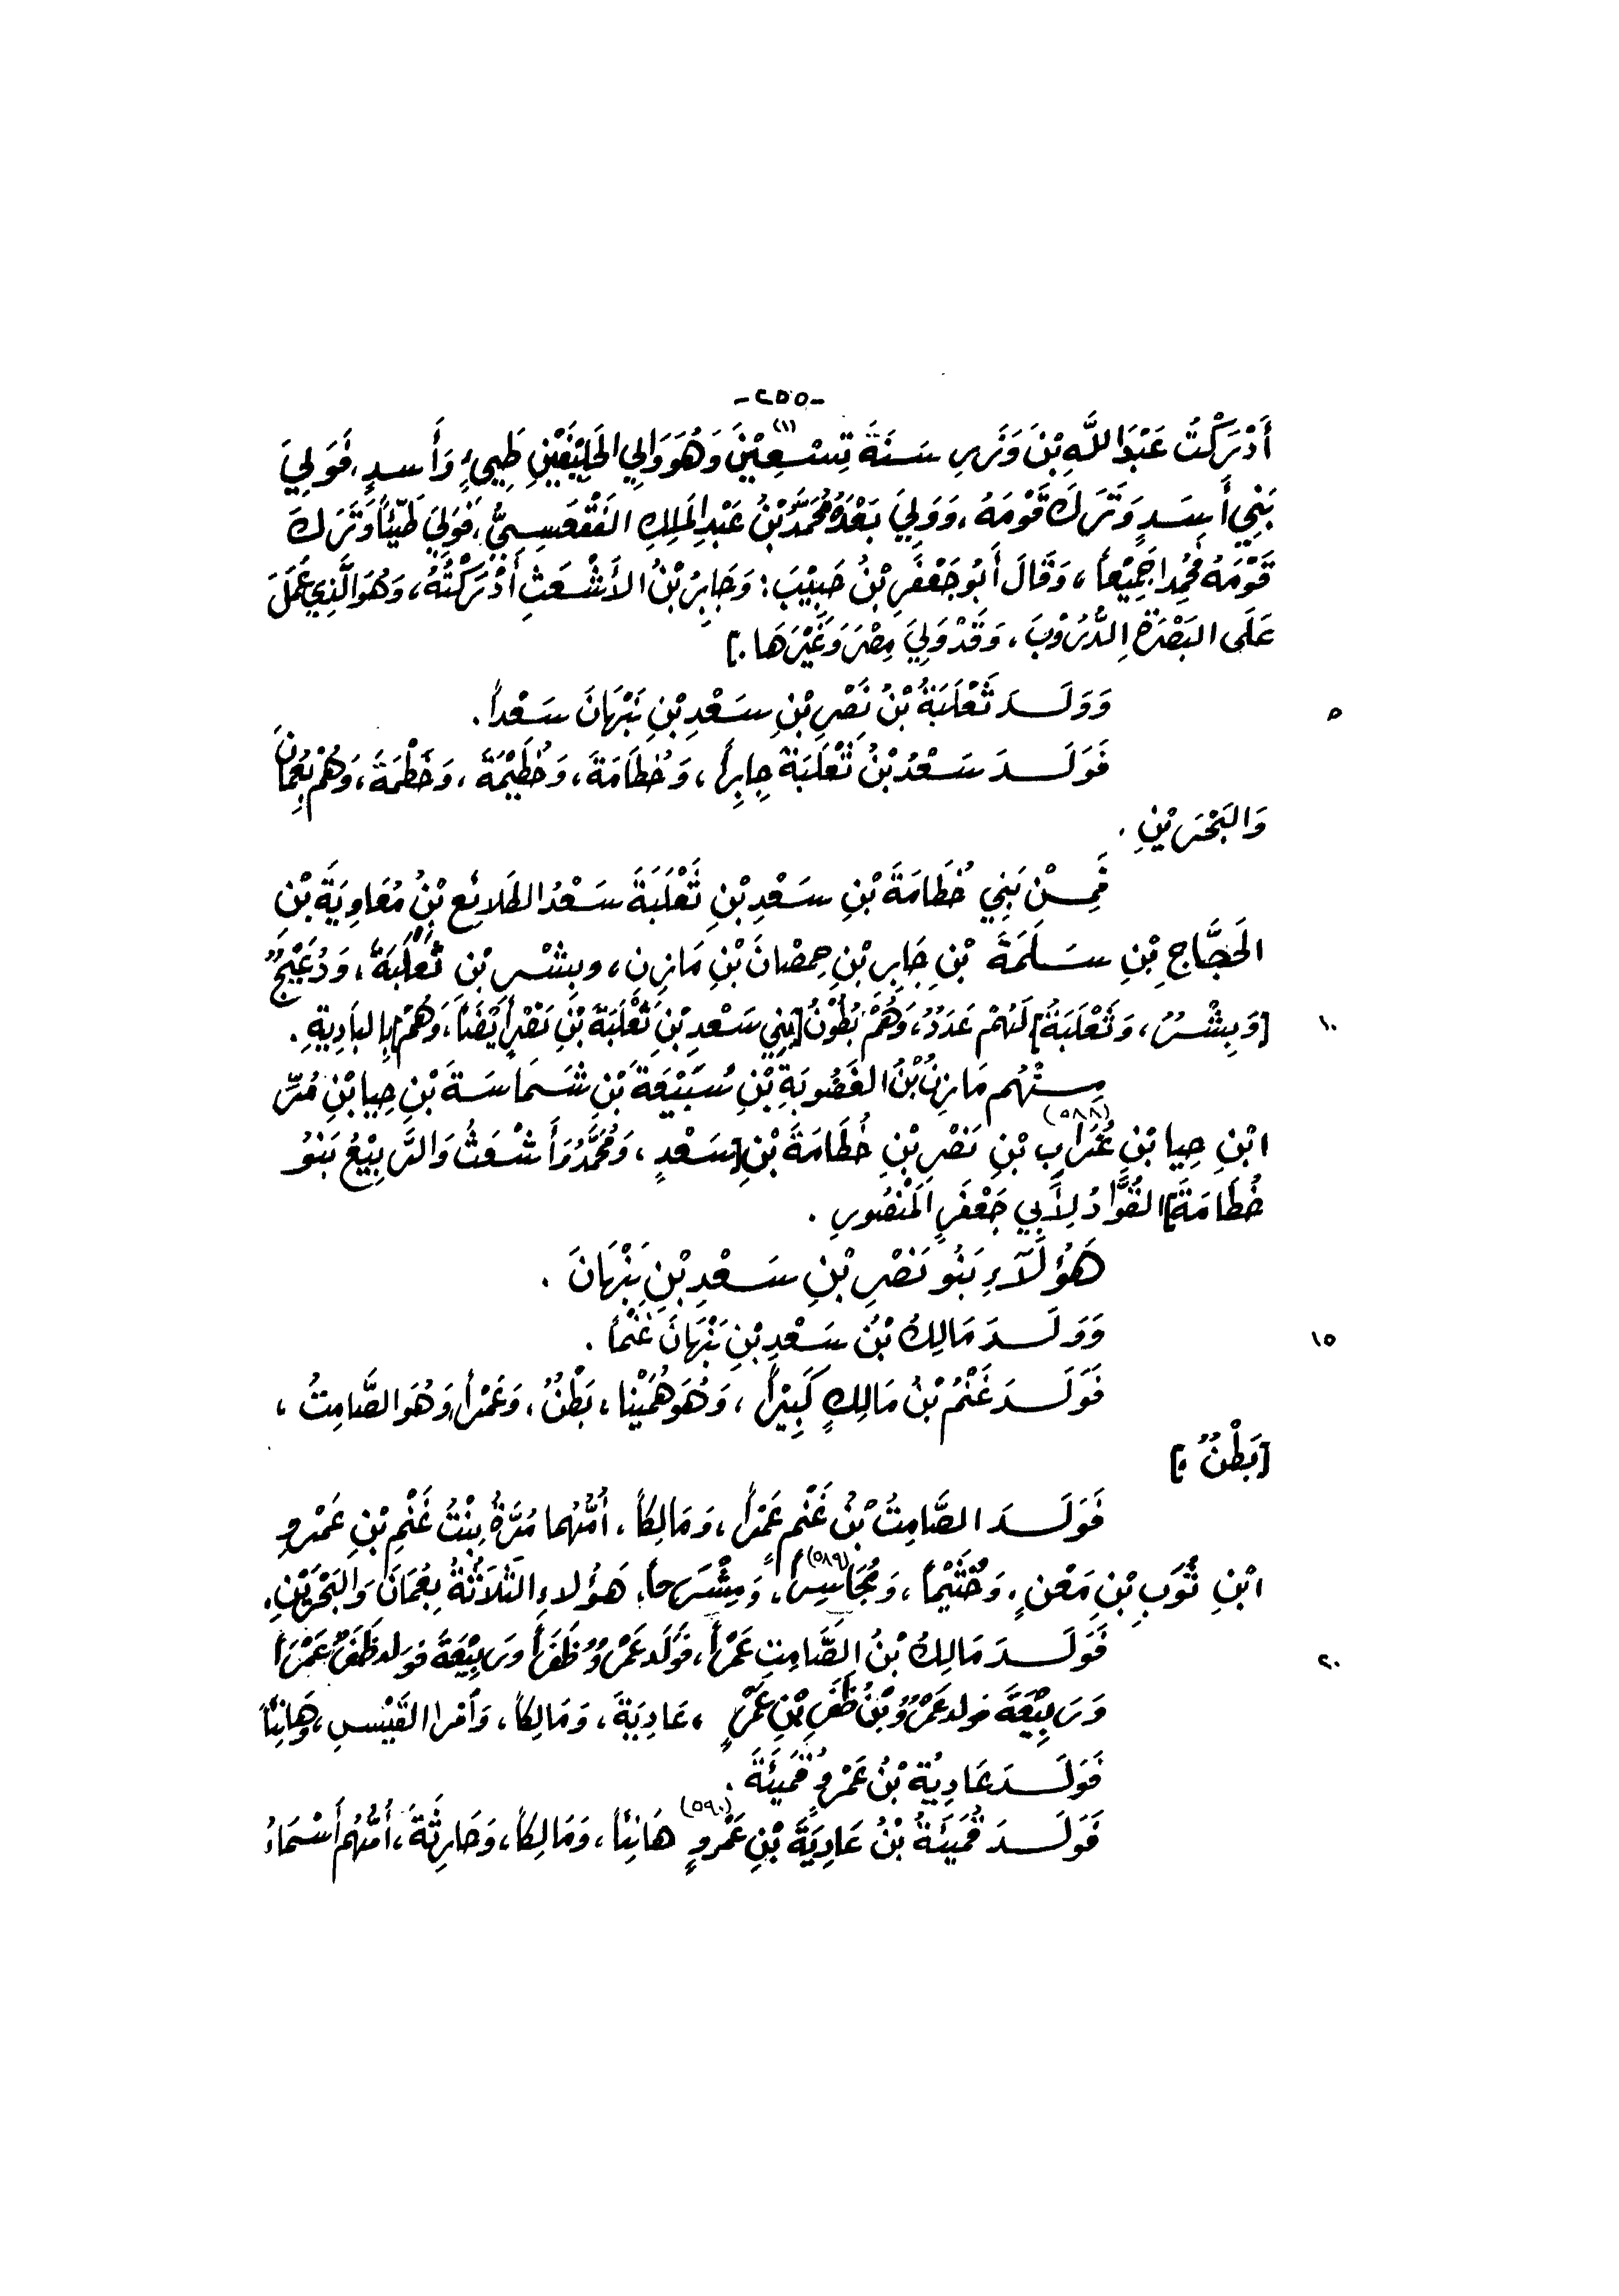 -٢٥٥-
أَدْرَكْتُ عَبْدَ اللَّهِ بْنَ وَزَرٍ سَنَةَ تِسْعِيْنَ (١) وَهُوَ وَالِي الحَلِيْفَيْنِ طَيِّيءٍ وَأَسدٍ، فَوَلِيَ
بَنِي أَسَدٍ وَتَرَكَ قَوْمَهُ، وَوَلِيَ بَعْدَهُ مُحَمَّدُ بْنُ عَبْدِ المَلِكِ الفَقْعَسِيُّ، فَوَلِيَ طَيِّئاً وَتَرَكَ
قَوْمَهُ فَحُمِدَا جَمِيْعاً، وَقَالَ أَبُو جَعْفَرِ بْنُ حَبِيْبَ: وَجَابِرُ بْنُ الأَشْعَثِ أَدْرَكْتُهُ، وَهُوَ الَّذِي عَمِلَ
عَلَى البَصْرَةِ الدُّرُوْبَ، وَقَدْ وَلِيَ مِصْرَ وَغَيْرَهَا.]
٥ وَوَلَدَ ثَعْلَبَةُ بْنُ نَصْرِ بْنِ سَعْدِ بْنِ نَبْهَانَ سَعْداً.
فَوَلَدَ سَعْدُ بْنُ ثَعْلَبَةَ جابِراً، وَخُطَامَةَ، وَخُطَيْمَةَ، وَخَطْمَةَ، وَهُمْ بِعُمَانَ
وَالبَحْرَيْنِ.
فَمِنْ بَنِي خُطَامَةَ بْنِ سَعْدِ بْنِ ثَعْلَبَةَ سَعْدُ الطَلائِعِ بْنُ مُعَاوِيَةَ بْنِ
الحَجَّاجِ بْنِ سَلَمَةَ بْنِ جَابِرِ بْنِ حِمصَانَ بْنِ مَازِنِ، وبِشْرِ بْنِ ثَعْلَبَةَ، وَدُعَيْجٌ
١٠ [وَبِشْرٌ، وَثَعْلَبَةُ] لَهُمْ عَدَدٌ، وَهُمْ بُطُوْنُ [بَنِي سَعْدِ بْنِ ثَعْلَبَةَ بْنِ نَصْرٍ أَيْضَاً، وَهُمْ] بِالبَادِيَةِ.
مِنْهُم مَازِنُ بْنُ الغَضُوبَةِ بْنِ سُبَيْعَةَ بْنِ شَمَاسَةَ بْنِ حِيا بْنِ مُرِّ
ابْنِ حِيا بْنِ غُرَابِ (٥٨٨) بْنِ نَصْرِ بْنِ خُطَامَةَ بْنِ [سَعْدٍ، وَمُحَمَّدُ وَأَشْعَثُ وَالرَّبِيْعُ بَنُو
خُطَامَةَ] القُوَّادُ لِأَبِي جَعْفَرٍ المَنْصُورِ.
هَؤُلَآءِ بَنُو نَصْرِ بْنِ سَعْدِ بْنِ نَبْهَانَ.
١٥ وَوَلَدَ مَالِكُ بْنُ سَعْدِ بْنِ نَبْهَانَ غَنْماً.
فَوَلَدَ غَنْمُ بْنُ مَالِكٍ كَبِيْراً، وَهُوَ هُمَيْنا، بَطْنٌ، وَعَمْراً، وَهُوَ الصَّامِتُ،
[بَطْنٌ.]
فَوَلَدَ الصَّامِتُ بْنُ غَنْمٍ عَمْراً، وَمَالِكاً، أُمُّهُما مُرَّةُ بِنْتُ غَنْمِ بْنِ عَمْرِو
ابْنِ ثُوَبِ بْنِ مَعْنٍ. وَخُثَيْماً، وَمُجَاسِراً (٥٨٩)، وَمِشْرَحاً، هَؤُلاءِ الثَلَاثَةُ بِعُمَانَ وَالبَحْرَيْنِ.
٢٠ فَوَلَدَ مَالِكُ بْنُ الصَّامِتِ عَمْراً، فَوَلَد عَمْرٌو ظَفَراً وَرَبِيْعَةَ فَوَلد ظَفَرٌ عَمْراً
وَرَبِيْعَةَ فولد عَمْرُو بْنُ ظَفَرِ بْنِ عَمْرٍ، عَادِيَةَ، وَمَالِكاً، وَامْرأ القَيْسِ، وَهَانِئاً
فَوَلَدَ عَادِيَة بْنُ عَمْرٍو قُمَيْئَةَ.
فَوَلَدَ قُمَيْئَةُ بْنُ عَادِيَةَ بْنِ عَمْرٍو (٥٩٠) هَانِئاً، وَمَالِكاً، وَحَارِثَةَ، أُمُّهُم أَسْمَاءُ